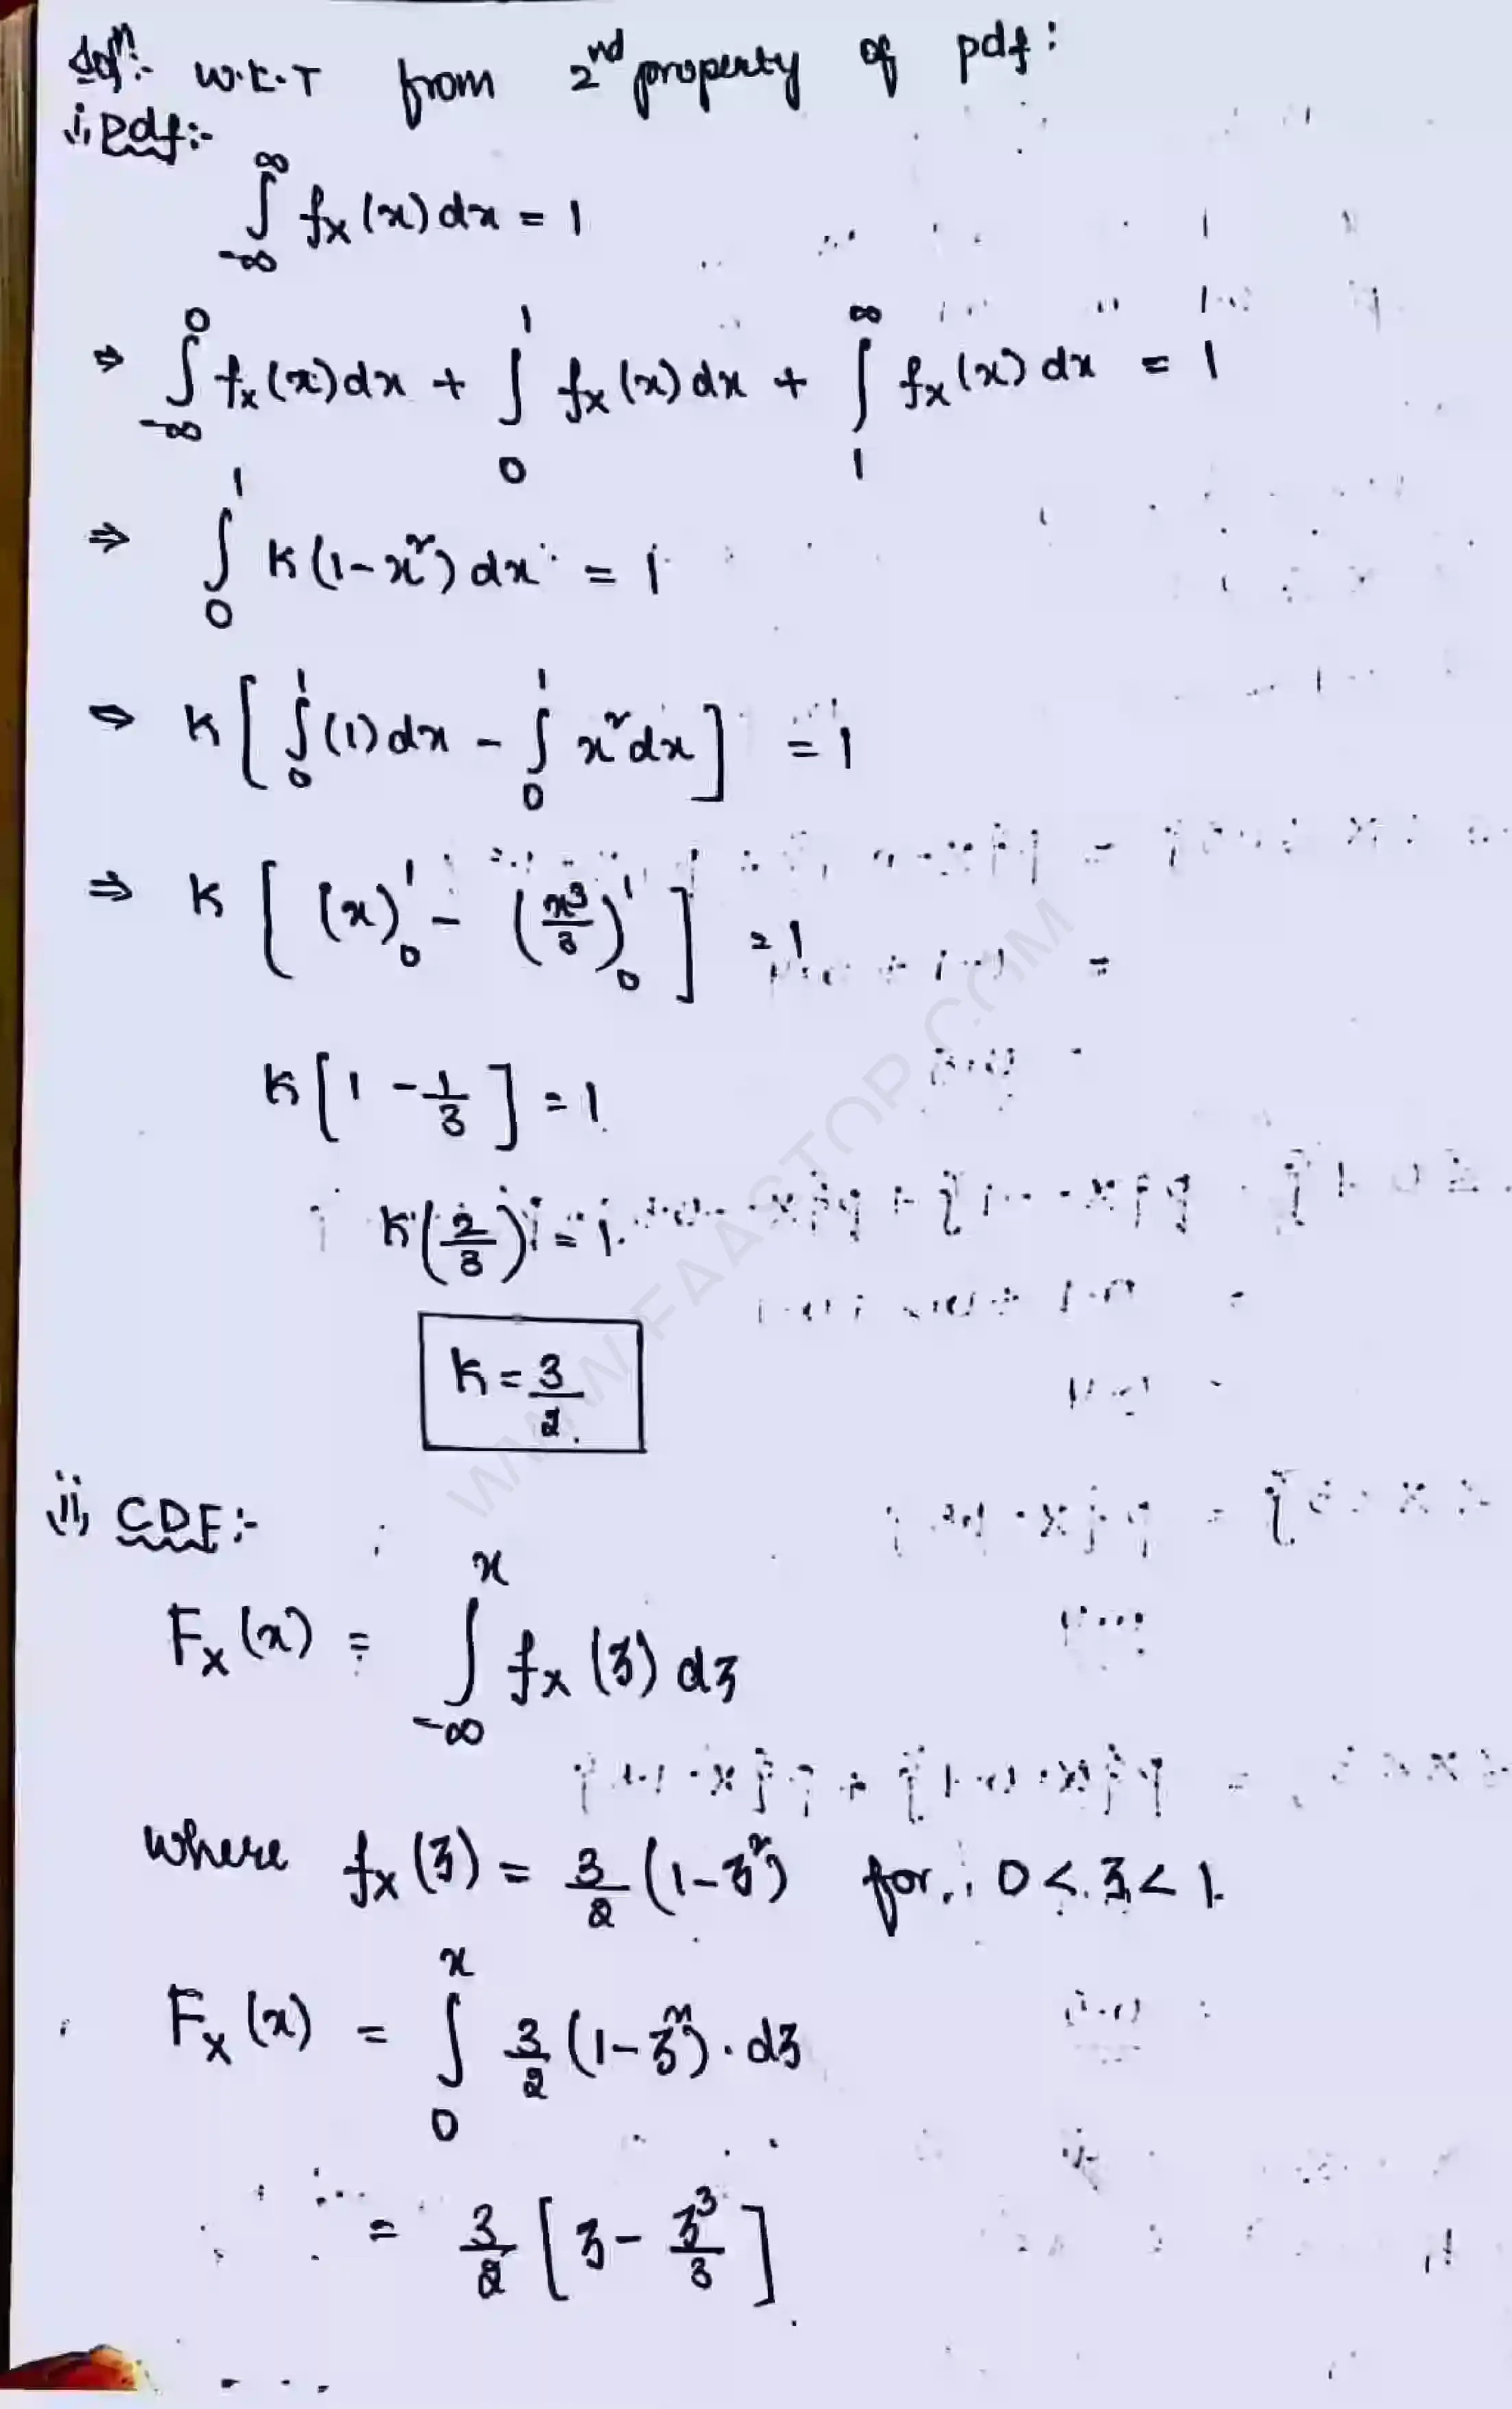 Soln:- W.K.T from 2nd property of pdf:
i, Pdf:-
∫_{-∞}^{∞} fx(x) dx = 1
⇒ ∫_{-∞}^{0} fx(x) dx + ∫_{0}^{1} fx(x) dx + ∫_{1}^{∞} fx(x) dx = 1
⇒ ∫_{0}^{1} K(1-x²) dx = 1
⇒ K[∫_{0}^{1} (1) dx - ∫_{0}^{1} x² dx] = 1
⇒ K[(x)_{0}^{1} - (x³/3)_{0}^{1}] = 1
K[1 - 1/3] = 1
K(2/3) = 1
K = 3/2
ii, CDF:-
F_X(x) = ∫_{-∞}^{x} fx(ʒ) dʒ
where fx(ʒ) = 3/2 (1-ʒ²) for 0 < ʒ < 1
F_X(x) = ∫_{0}^{x} 3/2 (1-ʒ²) . dʒ
= 3/2 [ʒ - ʒ³/3]
WWW.FAASTOP.COM